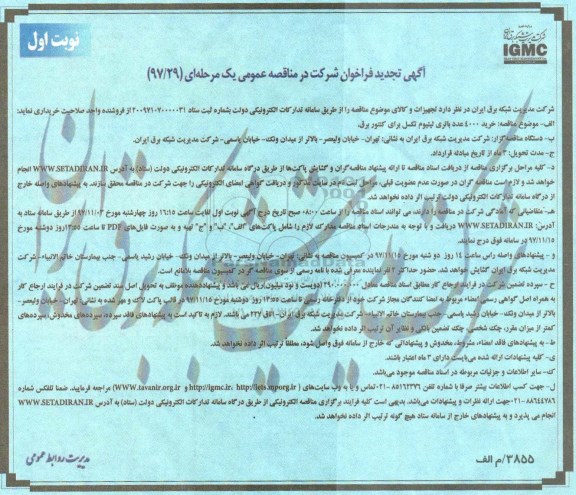 نوبت اول
شرکت مدیریت شبکه برق ایران
IGMC
آگهی تجدید فراخوان شرکت در مناقصه عمومی یک مرحله‌ای (۹۷/۲۹)
شرکت مدیریت شبکه برق ایران در نظر دارد تجهیزات و کالای موضوع مناقصه را از طریق سامانه تدارکات الکترونیکی دولت بشماره ثبت ستاد ۲۰۰۹۷۱۰۷۰۰۰۰۰۳۱ از فروشنده واجد صلاحیت خریداری نماید:
الف- موضوع مناقصه: خرید ۴۰۰۰ عدد باتری لیتیوم تکسل برای کنتور برق.
ب- دستگاه مناقصه‌گزار: شرکت مدیریت شبکه برق ایران به نشانی: تهران- خیابان ولیعصر- بالاتر از میدان ونک- خیابان یاسمی- شرکت مدیریت شبکه برق ایران.
ج- مدت تحویل: ۳ ماه از تاریخ مبادله قرارداد.
د- کلیه مراحل برگزاری مناقصه از دریافت اسناد مناقصه تا ارائه پیشنهاد مناقصه‌گران و گشایش پاکت‌ها از طریق درگاه سامانه تدارکات الکترونیکی دولت (ستاد) به آدرس WWW.SETADIRAN.IR انجام
خواهد شد و لازم است مناقصه گران در صورت عدم عضویت قبلی، مراحل ثبت نام در سایت مذکور و دریافت گواهی امضای الکترونیکی را جهت شرکت در مناقصه محقق سازند. به پیشنهادهای واصله خارج
از درگاه سامانه تدارکات الکترونیکی دولت ترتیب اثر داده نخواهد شد.
هـ- متقاضیانی که آمادگی شرکت در مناقصه را دارند، می توانند اسناد مناقصه را از ساعت ۰۸:۰۰ صبح تاریخ درج آگهی نوبت اول لغایت ساعت ۱۶:۱۵ روز چهارشنبه مورخ ۹۷/۱۱/۰۳ از طریق سامانه ستاد به
آدرس: WWW.SETADIRAN.IR دریافت و با توجه به مندرجات اسناد مناقصه مدارکه لازم را شامل پاکت‌های "الف"، "ب" و "ج" تهیه و به صورت فایل‌های PDF تا ساعت ۱۳:۵۵ روز دوشنبه مورخ
۹۷/۱۱/۱۵ در سامانه فوق درج نمایند.
و - پیشنهادهای واصله راس ساعت ۱۴ روز دو شنبه مورخ ۹۷/۱۱/۱۵ در کمیسیون مناقصه به نشانی: تهران- خیابان ولیعصر- بالاتر از میدان ونک- خیابان رشید یاسمی- جنب بیمارستان خاتم الانبیاء- شرکت
مدیریت شبکه برق ایران گشایش خواهد شد. حضور حداکثر ۲ نفر نماینده معرفی شده با نامه رسمی از سوی مناقصه گر در کمیسیون مناقصه بلامانع است.
ح - سپرده تضمین شرکت در فرایند ارجاع کار مطابق اسناد مناقصه معادل ۲۹۰،۰۰۰،۰۰۰ (دویست و نود میلیون) ریال می باشد و پیشنهاددهنده موظف به تحویل اصل سند تضمین شرکت در فرایند ارجاع کار
به همراه اصل گواهی رسمی امضاء مربوط به امضا کنندگان مجاز شرکت خود از دفترخانه رسمی تا ساعت ۱۳:۵۵ روز دوشنبه مورخ ۹۷/۱۱/۱۵ در قالب پاکت لاک و مهر شده به نشانی تهران- خیابان ولیعصر-
بالاتر از میدان ونک- خیابان رشید یاسمی- جنب بیمارستان خاتم الانبیاء- شرکت مدیریت شبکه برق ایران- اتاق ۲۲۷ می باشند. لازم به تاکید است به پیشنهادهای فاقد سپرده، سپرده‌های مخدوش، سپرده‌های
کمتر از میزان مقرر، چک شخصی چک تضمین بانکی و نظایر آن ترتیب اثر داده نخواهد شد.
ط- به پیشنهادهای فاقد امضاء، مشروط، مخدوش و پیشنهاداتی که خارج از سامانه فوق واصل شود، مطلقاً ترتیب اثر داده نخواهد شد.
ی- کلیه پیشنهادات ارائه شده می‌بایست دارای ۳ ماه اعتبار باشند.
ک- سایر اطلاعات و جزئیات مربوطه در اسناد مناقصه موجود می‌باشد.
ل- جهت کسب اطلاعات بیشتر صرفا با شماره تلفن ۸۵۱۶۲۳۷۶-۰۲۱ تماس و یا به وب سایت‌های (http://iets.mporg.ir ،http://igmc.ir و WWW.tavanir.org.ir) مراجعه فرمایید. ضمنا تلفکس شماره
۸۸۶۴۴۷۸۶-۰۲۱ جهت ارائه نظرات و پیشنهادات می‌باشد. بدیهی است کلیه فرایند برگزاری مناقصه الکترونیکی از طریق درگاه سامانه تدارکات الکترونیکی دولت (ستاد) به آدرس WWW.SETADIRAN.IR
انجام می پذیرد و به پیشنهادهای خارج از سامانه ستاد هیچ گونه ترتیب اثر داده نخواهد شد.
۳۸۵۵/م الف
مدیریت روابط عمومی